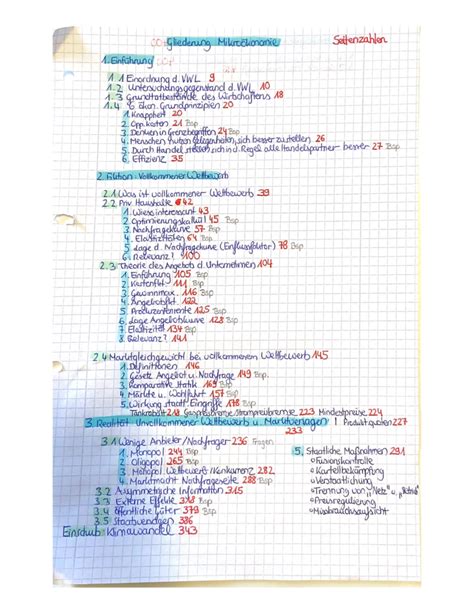 Gliederung Mikroökonomie Seitenzahlen
1. Einführung
1.1 Einordnung d. VWL 9
1.2 Untersuchungsgegenstand d. VWL 10
1.3 Grundtatbestände des Wirtschaftens 18
1.4 6 ökon. Grundprinzipien 20
1. Knappheit 20
2. Opp.kosten 21 Bsp
3. Denken in Grenzbegriffen 24 Bsp
4. Menschen nutzen Gelegenheiten, sich besser zu stellen 26
5. Durch Handel stellen sich in d. Regel alle Handelspartner besser 27 Bsp
6. Effizienz 35
2. Fiktion: Vollkommener Wettbewerb
2.1 Was ist vollkommener Wettbewerb 39
2.2 Priv. Haushalte 42
1. Wieso interessant 43
2. Optimierungskalkül 45 Bsp
3. Nachfragekurve 57 Bsp
4. Elastizitäten 64 Bsp
5. Lage d. Nachfragekurve (Einflussfaktor) 78 Bsp
6. Relevanz? 100
2.3 Theorie des Angebots d. Unternehmen 104
1. Einführung 105 Bsp
2. Kostenfkt. 111 Bsp
3. Gewinnmax. 116 Bsp
4. Angebotsfkt. 122
5. Produzentenrente 125 Bsp
6. Lage Angebotskurve 128 Bsp
7. Elastizität 134 Bsp
8. Relevanz? 141
2.4 Marktgleichgewicht bei vollkommenen Wettbewerb 145
1. Definitionen 146
2. Gesetz Angebot u. Nachfrage 149 Bsp.
3. Komparative Statik 169 Bsp
4. Märkte u. Wohlfahrt 157 Bsp
5. Wirkung staatl. Eingriffe 178 Bsp
Tankrabatt 218 Gaspreisbremse/Strompreisbremse 223 Mindestpreise 224
3. Realität: Unvollkommener Wettbewerb u. Marktversagen | Produktquoten 227
233
3.1 Wenige Anbieter/Nachfrager 236 Fragen
1. Monopol 244 Bsp
2. Oligopol 265 Bsp
3. Monopol. Wettbewerb/Konkurrenz 282
4. Marktmacht Nachfrageseite 288 Bsp
5. Staatliche Maßnahmen 291
Fusionskontrolle
Kartellbekämpfung
Verstaatlichung
Trennung von „Netz" u.
Preisregulierung
Missbrauchsaufsicht
3.2 Asymmetrische Information 315
3.3 Externe Effekte 328 Bsp
3.4 öffentliche Güter 379 Bsp
3.5 Staatsversagen 386
Einschub Klimawandel 343